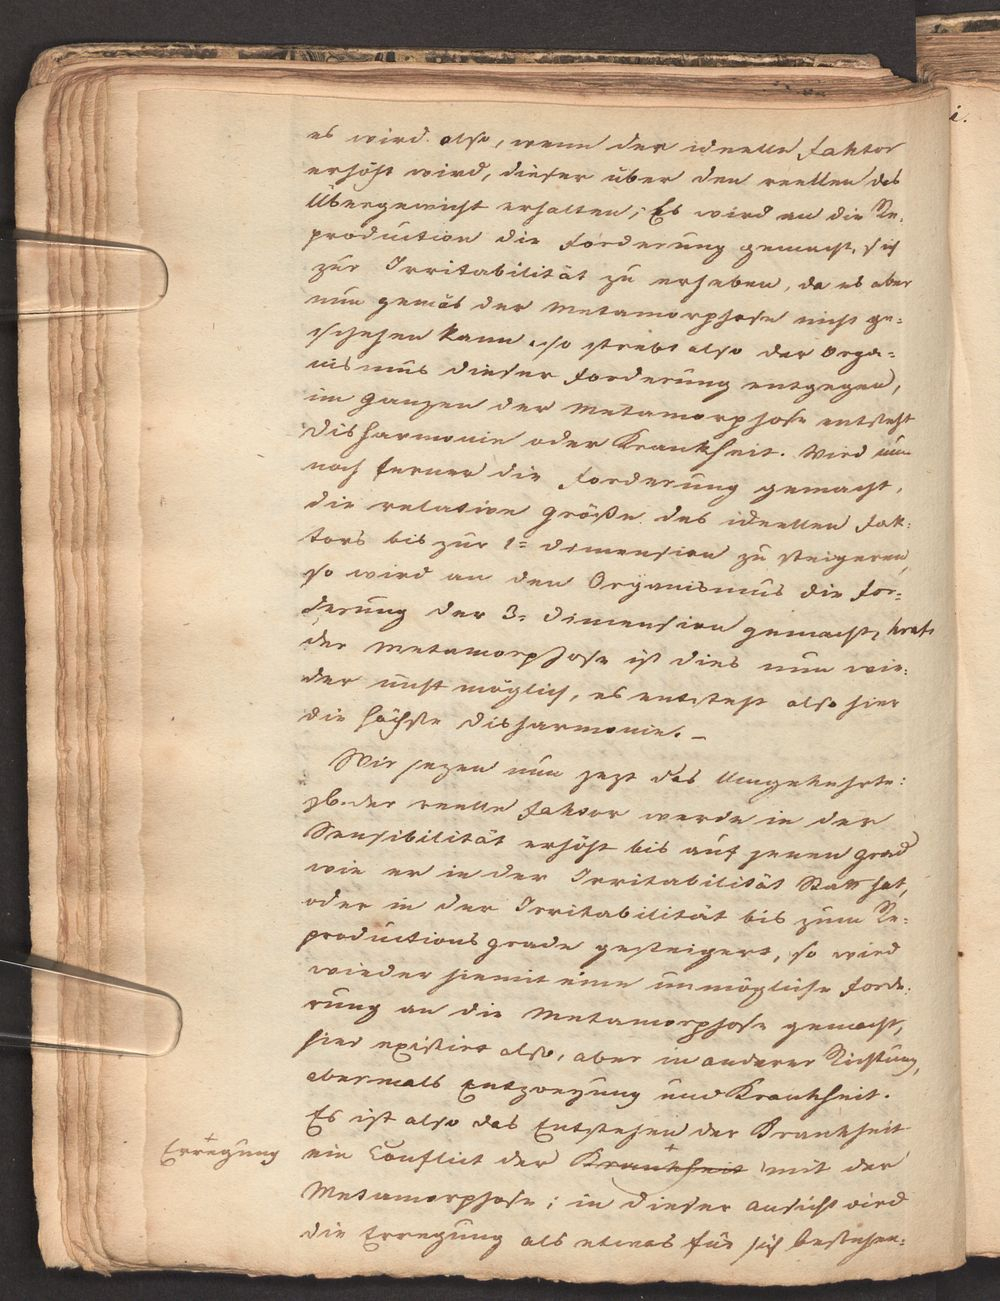 es wird also, wenn der ideelle Faktor
erhöht wird, dieser über den reellen das
Übergewicht erhalten; Es wird an die Re-
production die Forderung gemacht, sich
zur Irritabilität zu erheben, da es aber
nun gemäs der Metamorphose nicht ge-
schehen kann, so strebt also der Orga-
nismus dieser Forderung entgegen,
im Ganzen der Metamorphose entsteht
Disharmonie oder Krankheit. Wird nun
noch ferner die Forderung gemacht,
die relative Größe des ideellen Fak-
tors bis zur 1= Dimension zu steigeren,
so wird an den Organismus die For-
derung der 3= Dimension gemacht, kraft
der Metamorphose ist dies nun wie-
der nicht möglich, es entsteht also hier
die höchste Disharmonie. –
Wir sezen nun jezt das Umgekehrte:
zb. der reelle Faktor werde in der
Sensibilität erhöht bis auf jenen Grad
wie er in der Irritabilität Statt hat,
oder in der Irritabilität bis zum Re-
productionsgrade gesteigert, so wird
wieder hiemit eine unmögliche Forde-
rung an die Metamorphose gemacht,
hier existirt also, aber in anderer Richtung,
abermals Entzweyung und Krankheit.
Es ist also das Entstehen der Krankheit
ein Conflict der Krankheit + mit der
+ Erregung
Metamorphose; in dieser Ansicht wird
die Erregung als etwas für sich bestehen-
i.